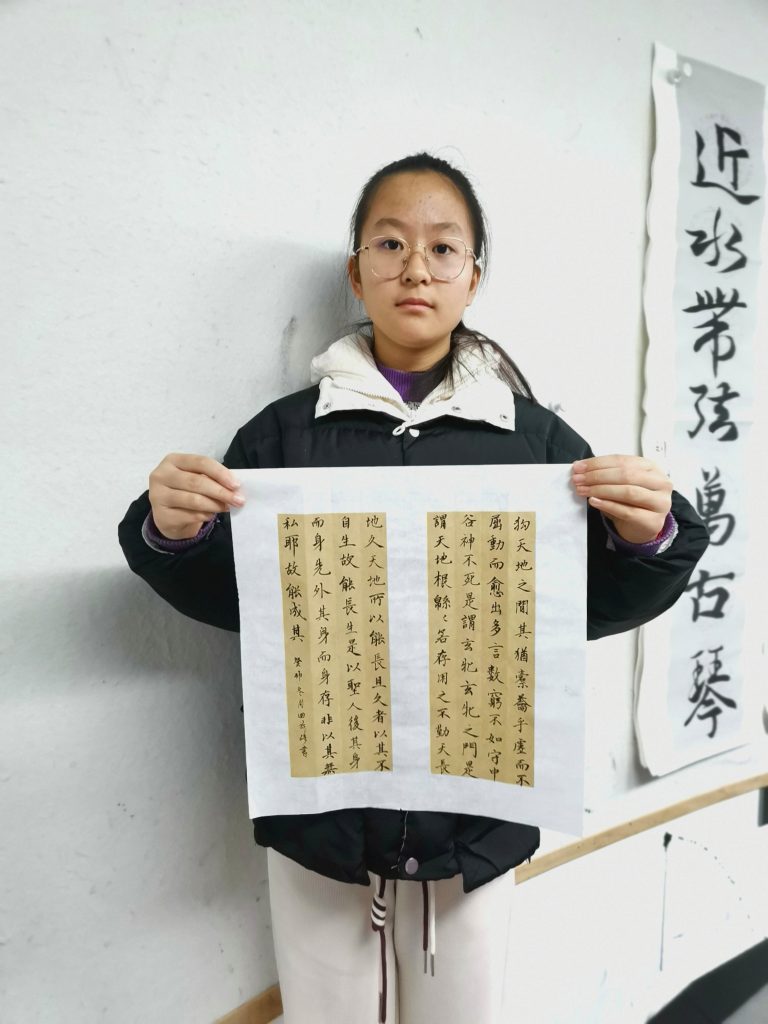 狗天地之間其猶橐籥乎虛而不
屈動而愈出多言數窮不如守中
谷神不死是謂玄牝玄牝之門是
謂天地根緜〻若存用之不勤天長
地久天地所以能長且久者以其不
自生故能長生是以聖人後其身
而身先外其身而身存非以其無
私耶故能成其
癸卯冬月田書
近水帶萬古琴